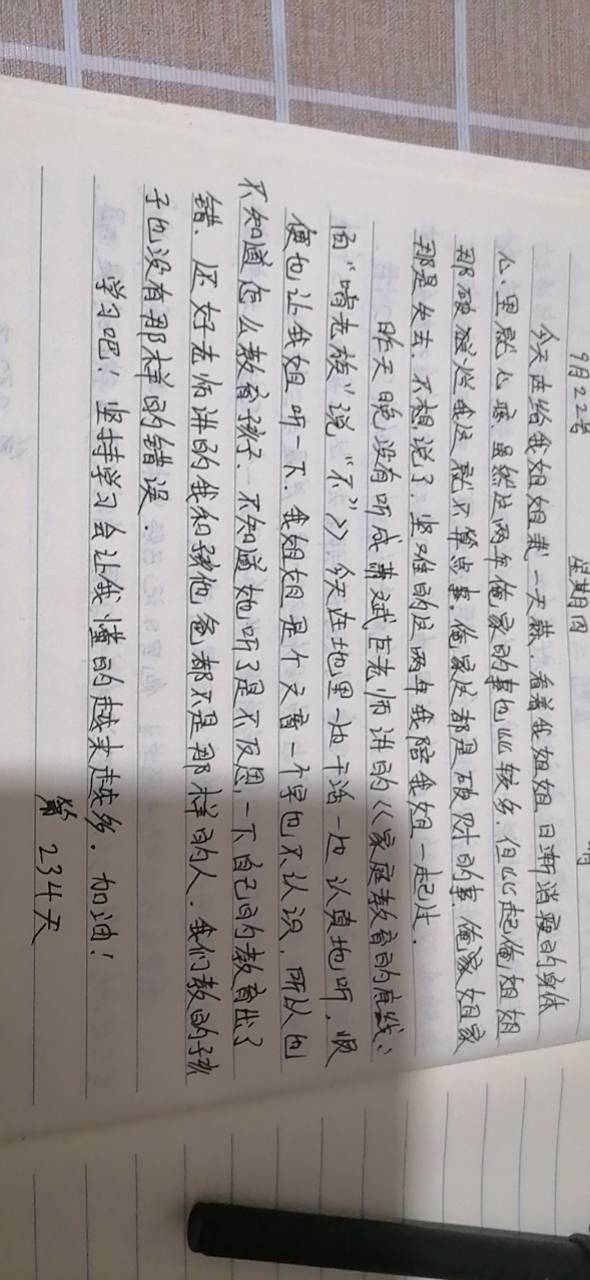 9月22号 星期四 晴
今天在给我姐姐栽一天蒜，看着我姐姐日渐消瘦的身体
心里就心疼。虽然这两年俺家的事也比较多，但比起俺姐姐
那破破烂烂这就不算点事。俺家这都是破财的事，俺家姐家
那是失去，不想说了，坚难的这两年我陪我姐一起过。
昨天晚没有听成黄斌巨老师讲的《家庭教育的底线：
向“啃老族”说“不”》今天在地里一边干活一边认真地听，顺
便也让我姐听一下。我姐姐是个文盲一个字也不认识，所以也
不知道怎么教育孩子，不知道她听了是不反思一下自己的教育出了
错，还好老师讲的我和孩他爸都不是那样的人。我们教的孩
子也没有那样的错误。
学习吧！坚持学习会让我懂的越来越多。加油！
第234天